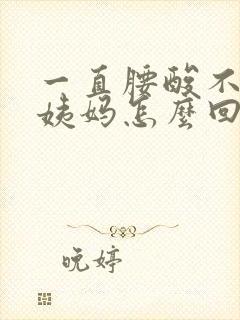 一直腰酸不
姨妈怎麼回
晚婷